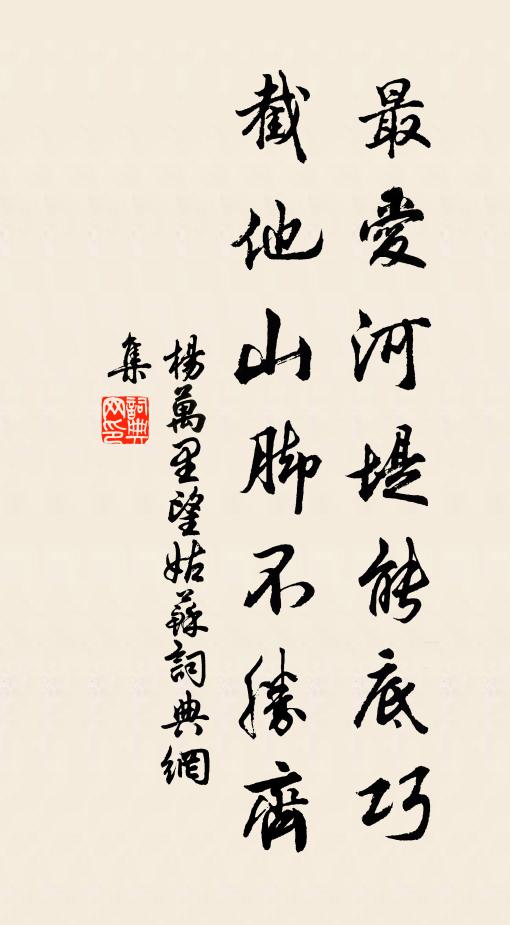 最愛河堤能底巧
截他山脚不勝齊
楊萬里望姑蘇詞典網
集
詞典
网印